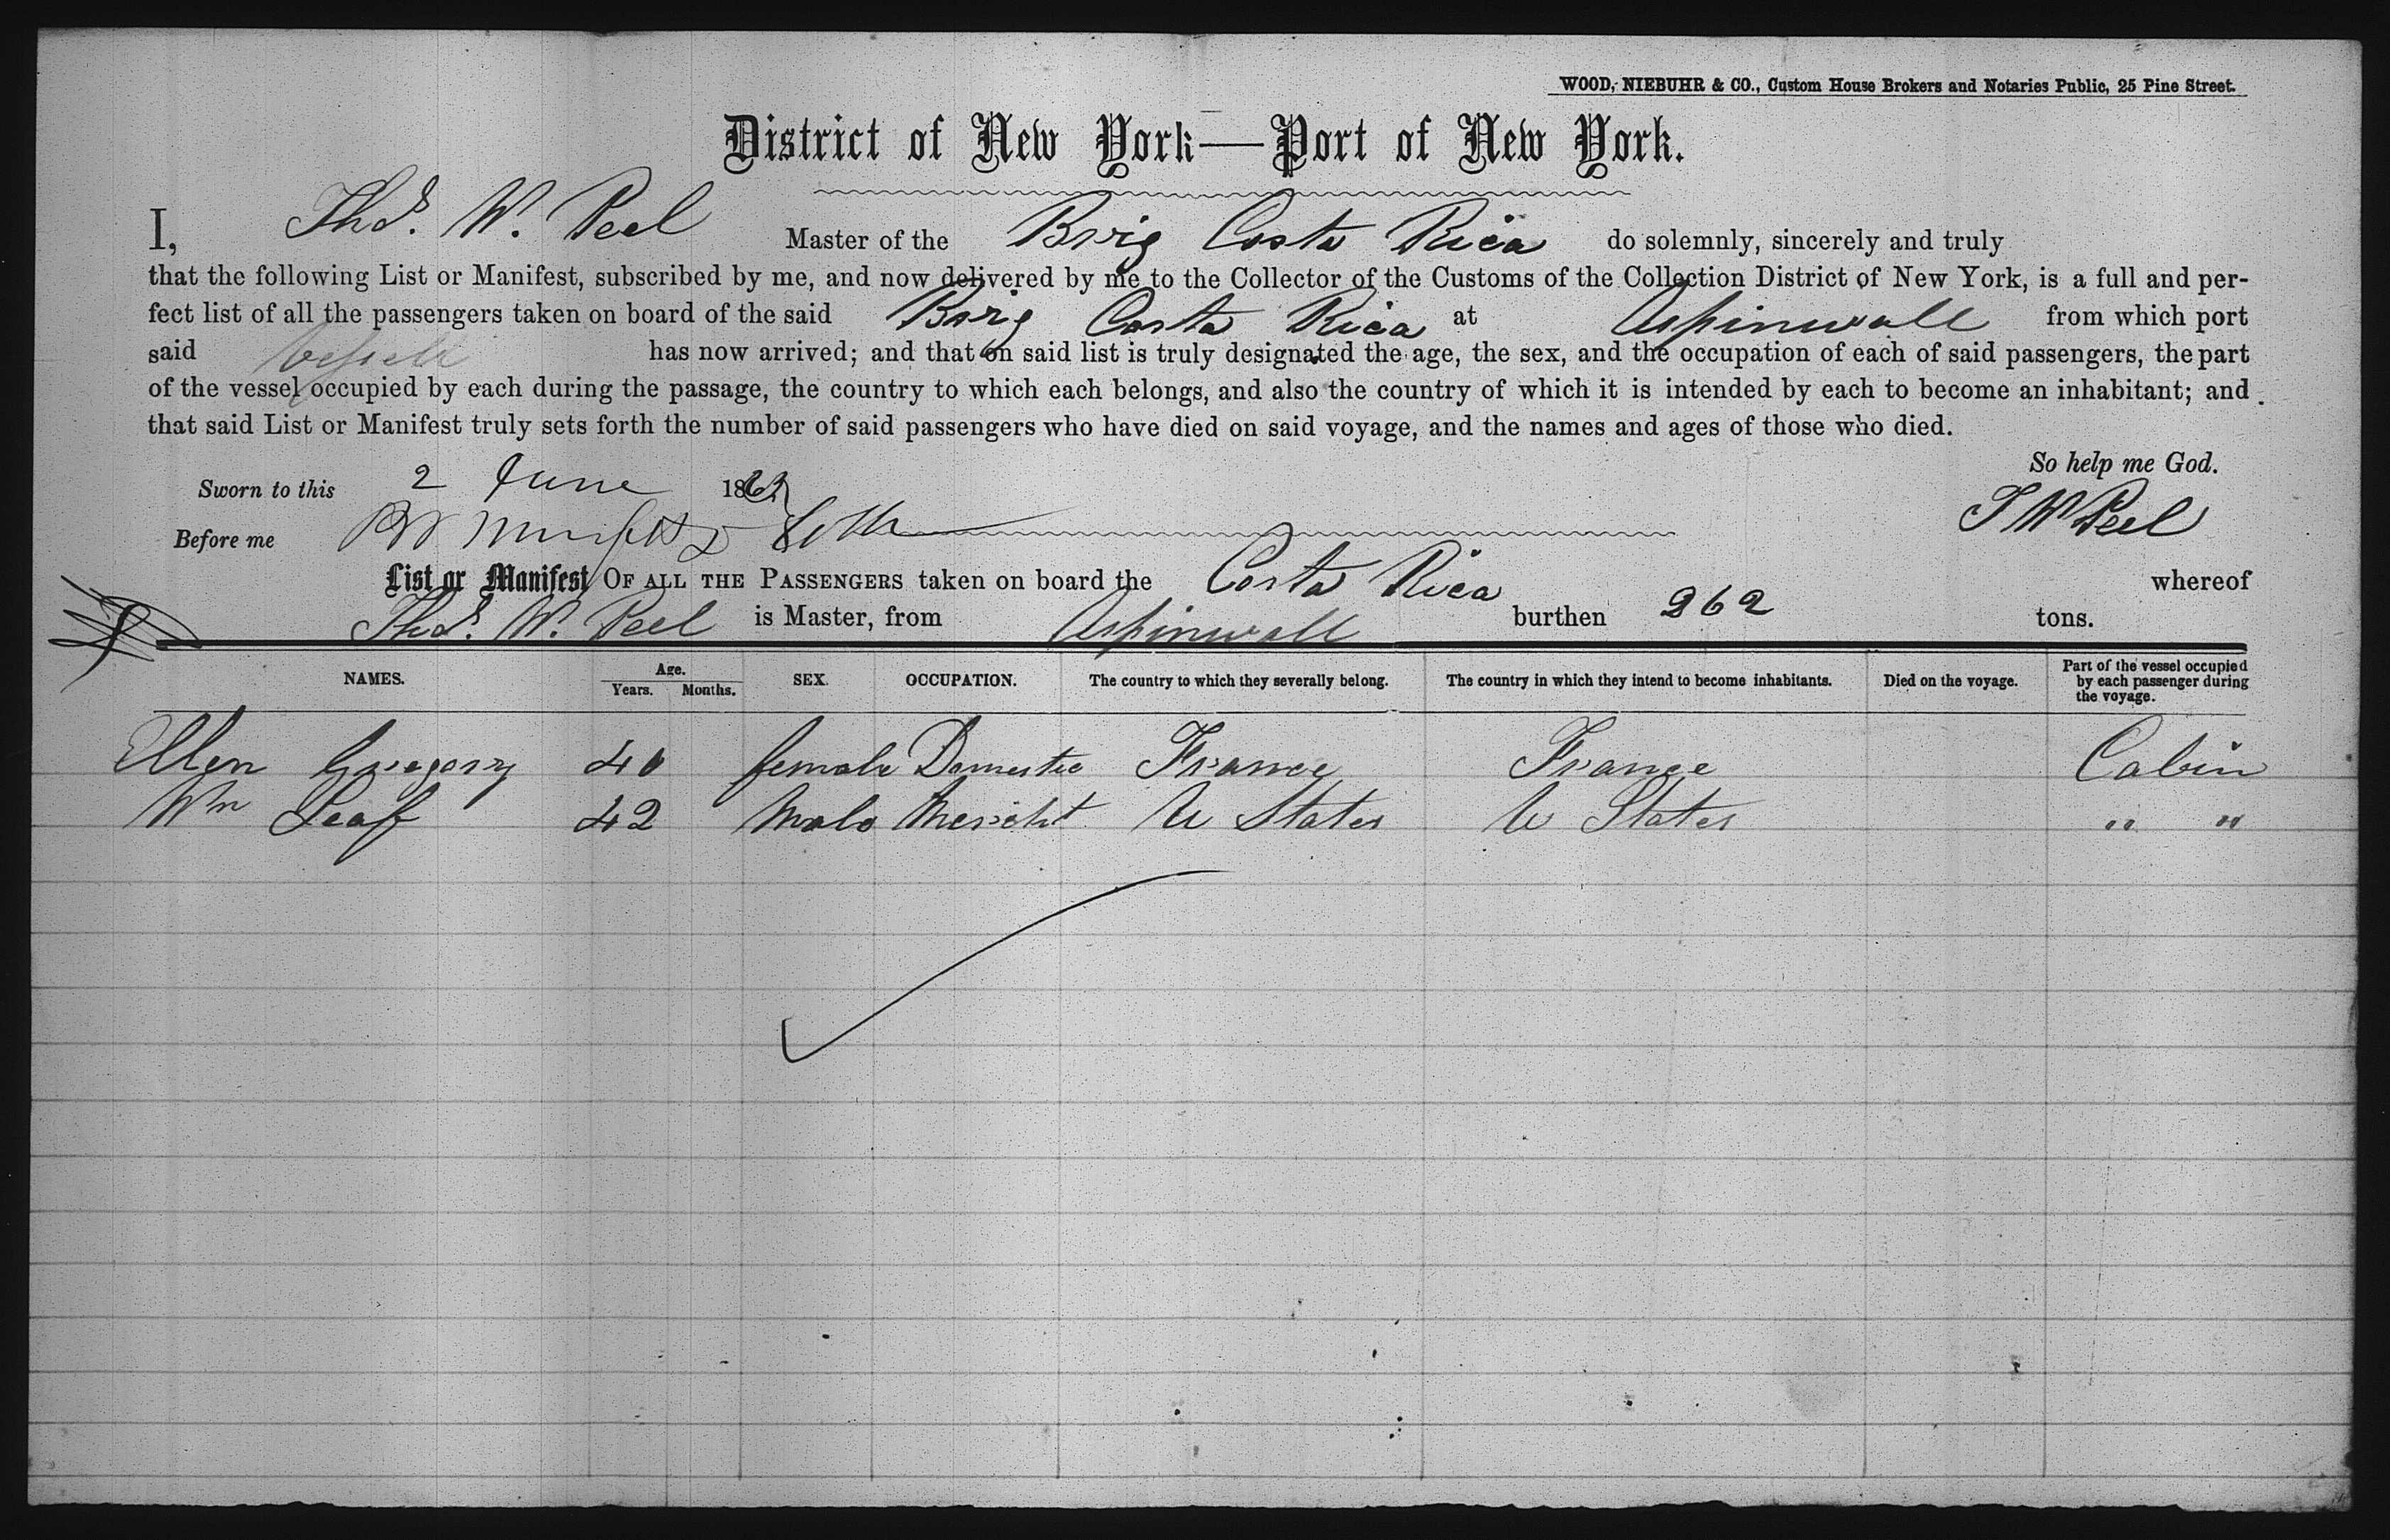 WOOD, NIEBUHR & CO., Custom House Brokers and Notaries Public, 25 Pine Street.
District of New York—Port of New York.
I, Thos. W. Peel Master of the Brig Costa Rica do solemnly, sincerely and truly
that the following List or Manifest, subscribed by me, and now delivered by me to the Collector of the Customs of the Collection District of New York, is a full and per-
fect list of all the passengers taken on board of the said Brig Costa Rica at Aspinwall from which port
said Vessell has now arrived; and that on said list is truly designated the age, the sex, and the occupation of each of said passengers, the part
of the vessel occupied by each during the passage, the country to which each belongs, and also the country of which it is intended by each to become an inhabitant; and
that said List or Manifest truly sets forth the number of said passengers who have died on said voyage, and the names and ages of those who died.
So help me God.
Sworn to this 2 June 1862
T W Peel
Before me
List or Manifest OF ALL THE PASSENGERS taken on board the Costa Rica whereof
Thos. W. Peel is Master, from Aspinwall burthen 262 tons.
NAMES. Age. Years. Months. SEX. OCCUPATION. The country to which they severally belong. The country in which they intend to become inhabitants. Died on the voyage. Part of the vessel occupied by each passenger during the voyage.
Ellen Gregory 40 female Domestic France France Cabin
Wm Leaf 42 Male Mercht U States U States " "